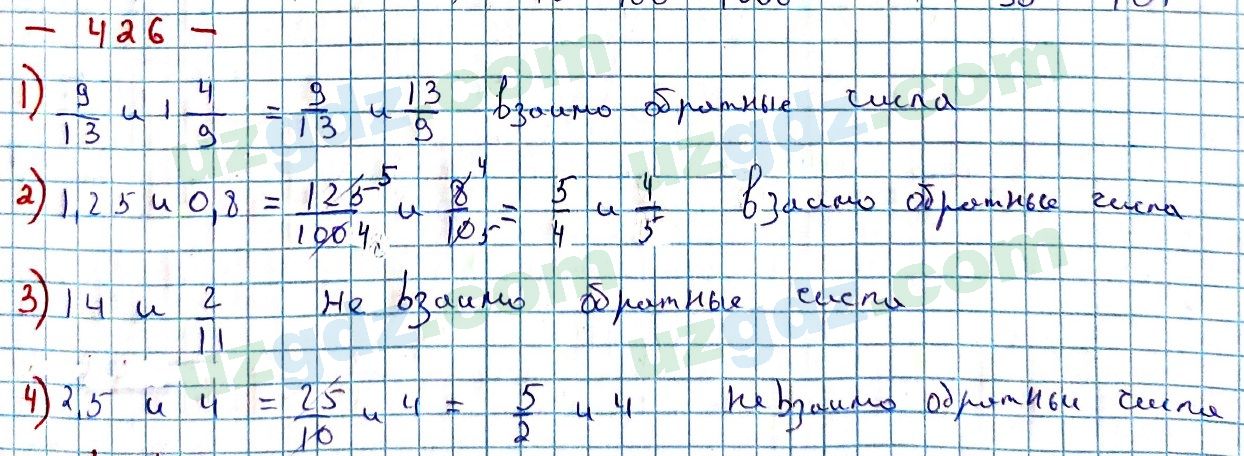 - 426 -
1) 9/13 и 1 4/9 = 9/13 и 13/9 взаимо обратные числа
2) 1,25 и 0,8 = 125 5/100 4 и 8 4/10 5 = 5/4 и 4/5 взаимо обратные числа
3) 14 и 2/11 не взаимо обратные числа
4) 2,5 и 4 = 25/10 и 4 = 5/2 и 4 не взаимо обратные числа
uzgdz.com
uzgdz.com
uzgdz.com
uzgdz.com